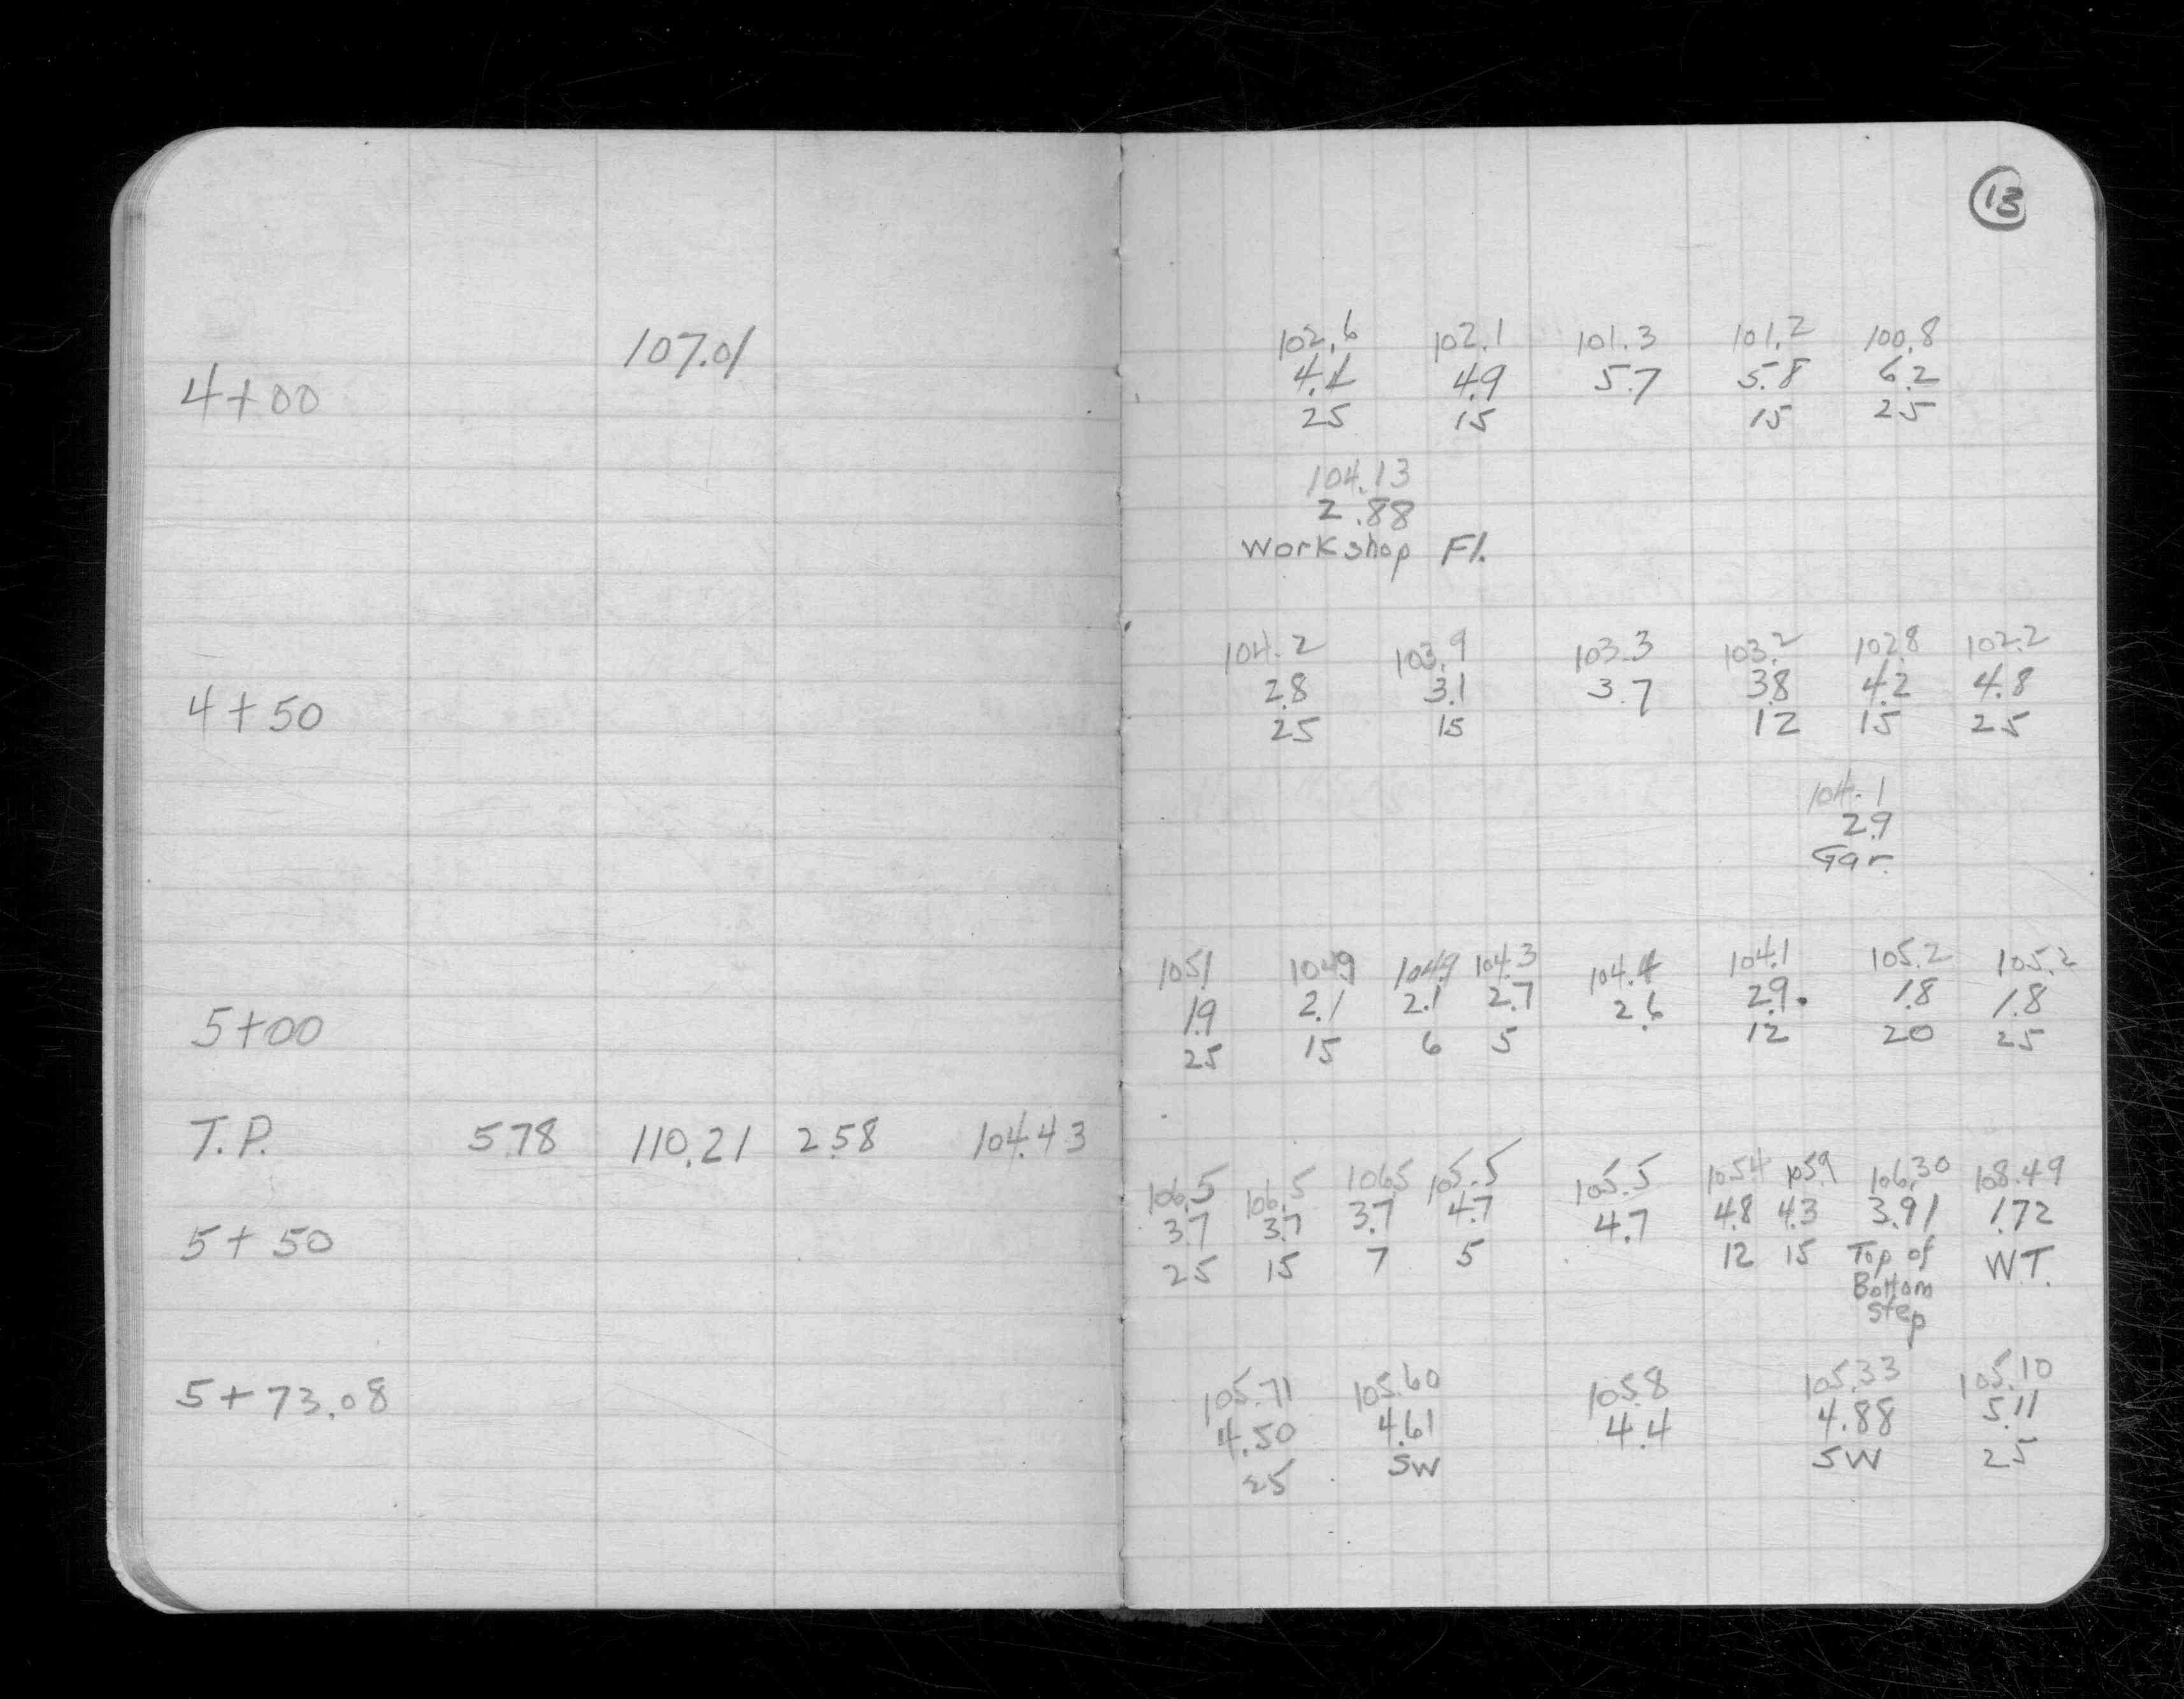 13
107.01
102.6 102.1 101.3 101.2 100.8
4+00 4.4 4.9 5.7 5.8 6.2
25 15 15 25
104.13
2.88
Workshop Fl.
104.2 103.9 103.3 103.2 102.8 102.2
4+50 2.8 3.1 3.7 3.8 4.2 4.8
25 15 12 15 25
104.1
2.9
Gar.
105.1 104.9 104.9 104.3 104.4 104.1 105.2 105.2
5+00 1.9 2.1 2.1 2.7 2.6 2.9 1.8 1.8
25 15 6 5 12 20 25
T.P. 5.78 110.21 2.58 104.43
106.5 106.5 106.5 105.5 105.5 105.4 105.9 106.30 108.49
5+50 3.7 3.7 3.7 4.7 4.7 4.8 4.3 3.91 1.72
25 15 7 5 12 15 Top of W.T.
Bottom
Step
105.71 105.60 105.8 105.33 105.10
5+73.08 4.50 4.61 4.4 4.88 5.11
25 SW SW 25